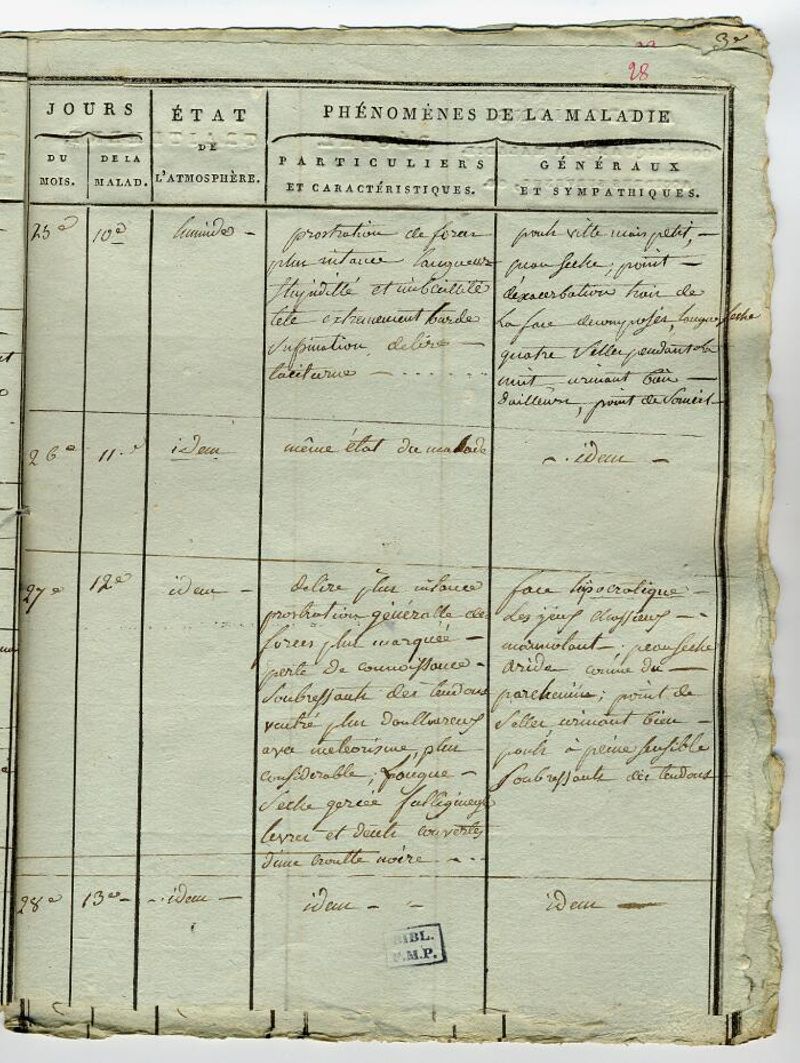 3e
28
JOURS
ÉTAT
PHÉNOMÈNES DE LA MALADIE
DU
MOIS.
DE LA
MALAD.
DE
L'ATMOSPHÈRE.
PARTICULIERS
ET CARACTÉRISTIQUES.
GÉNÉRAUX
ET SYMPATHIQUES.
25e
10e
humide -
prostration de forces
plus intance langueur
stupidité et imbécillité
tete extremement lourde
Supination, delire -
taciturne - . . . . . .
pouls vitte mais petit, -
peau seche; point -
déxacerbation hier
la face decomposée, langue seche
quatre Selles pendant la
nuit urinant bien -
dailleurs, point de Someil -
26e
11.e
idem
même état du malade
- . idem -
27e
12e
idem -
delire plus intance
prostration générale de
forces plus marquée -
perte de connoissance -
Soubressauts des tendons
ventre plus doulloureux
avec meteorisme, plus
considerable; langue -
Seche gercée fulligineuse
levres et dents couvertes
dune croutte noire - . .
face hipocratique -
Les yeux chassieux - -
marmotant; peau seche
aride comme du -
parchemin; point de
Selles urinant bien -
pouls à peine sensible
Soubressauts des tendons
28e
13e -
- . idem -
idem - -
idem -
BIBL.
F.M.P.